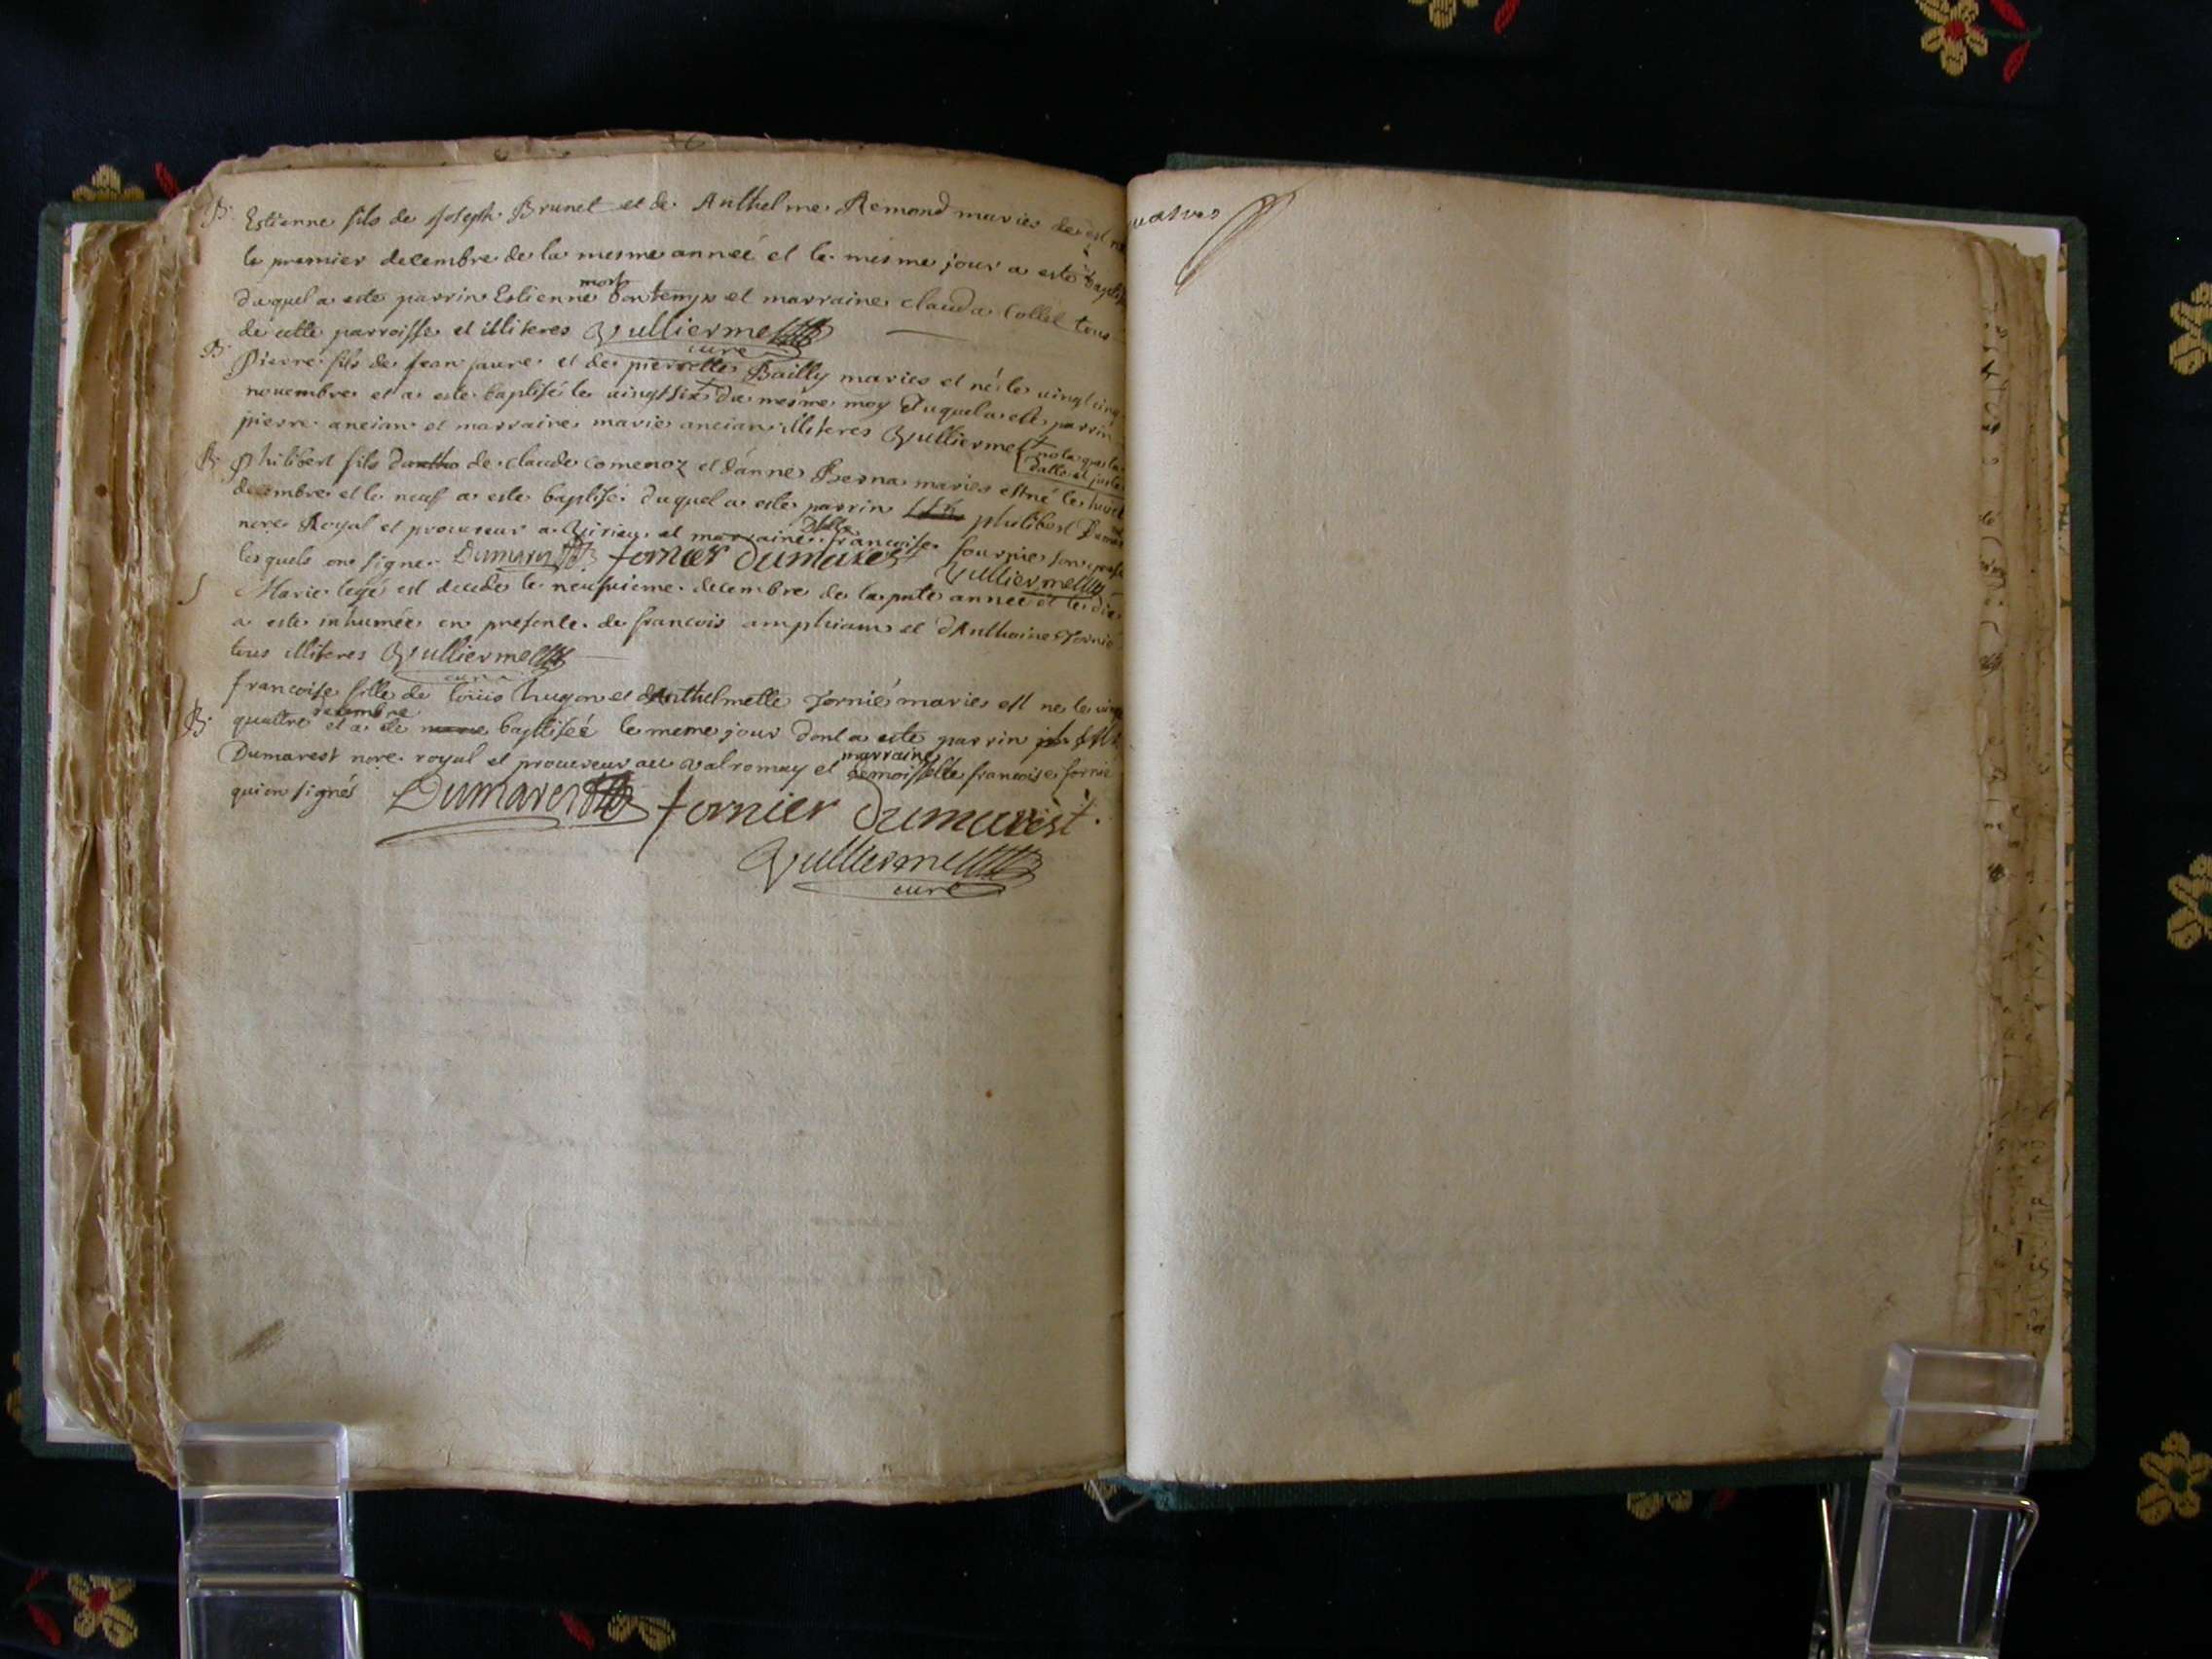 B. Estienne fils de Joseph Brunet et de Anthelme Remond maries de est
le premier decembre de la mesme anneé et le mesme jour a esté
duquel a este parrin Estienne bontemps et marraine clauda Collet tous
mort
de cette parroisse et illiteres Vulliermet
curé
B. Pierre fils de Jean jaure et de pierrette Bailly maries et né le vingt cinq
novembre et a este baptisé le vingt six du mesme moy duquel a este parrin
pierre ancian et marraine marie ancian illiteres Vulliermet
nota que la
datte est juste
B. Philibert fils de claude comenoz et d'anne Berna maries est né le huict
decembre et le neuf a este baptisé duquel a este parrin philibert
nore Royal et procureur a Virieu et marraine Dlle francoise fournie son
lesquels on signe Dumarest fornier dumarest
Vulliermet
S Marie legé est decede le neufvieme decembre de la pnte anneé et le dix
a este inhumée en presente de francois amphian et d'Anthoine Fornié
tous illiteres Vulliermet
curé
francoise fille de loüis hugon et d'Anthelmette Fornié maries est ne le
B. quattre decembre et a été baptiseé le meme jour dont a este parrin
Dumarest nore royal et procureur au valromay et marraine demoiselle francoise fornie
qui on signés Dumarest fornier dumarest
Vulliermet
curé